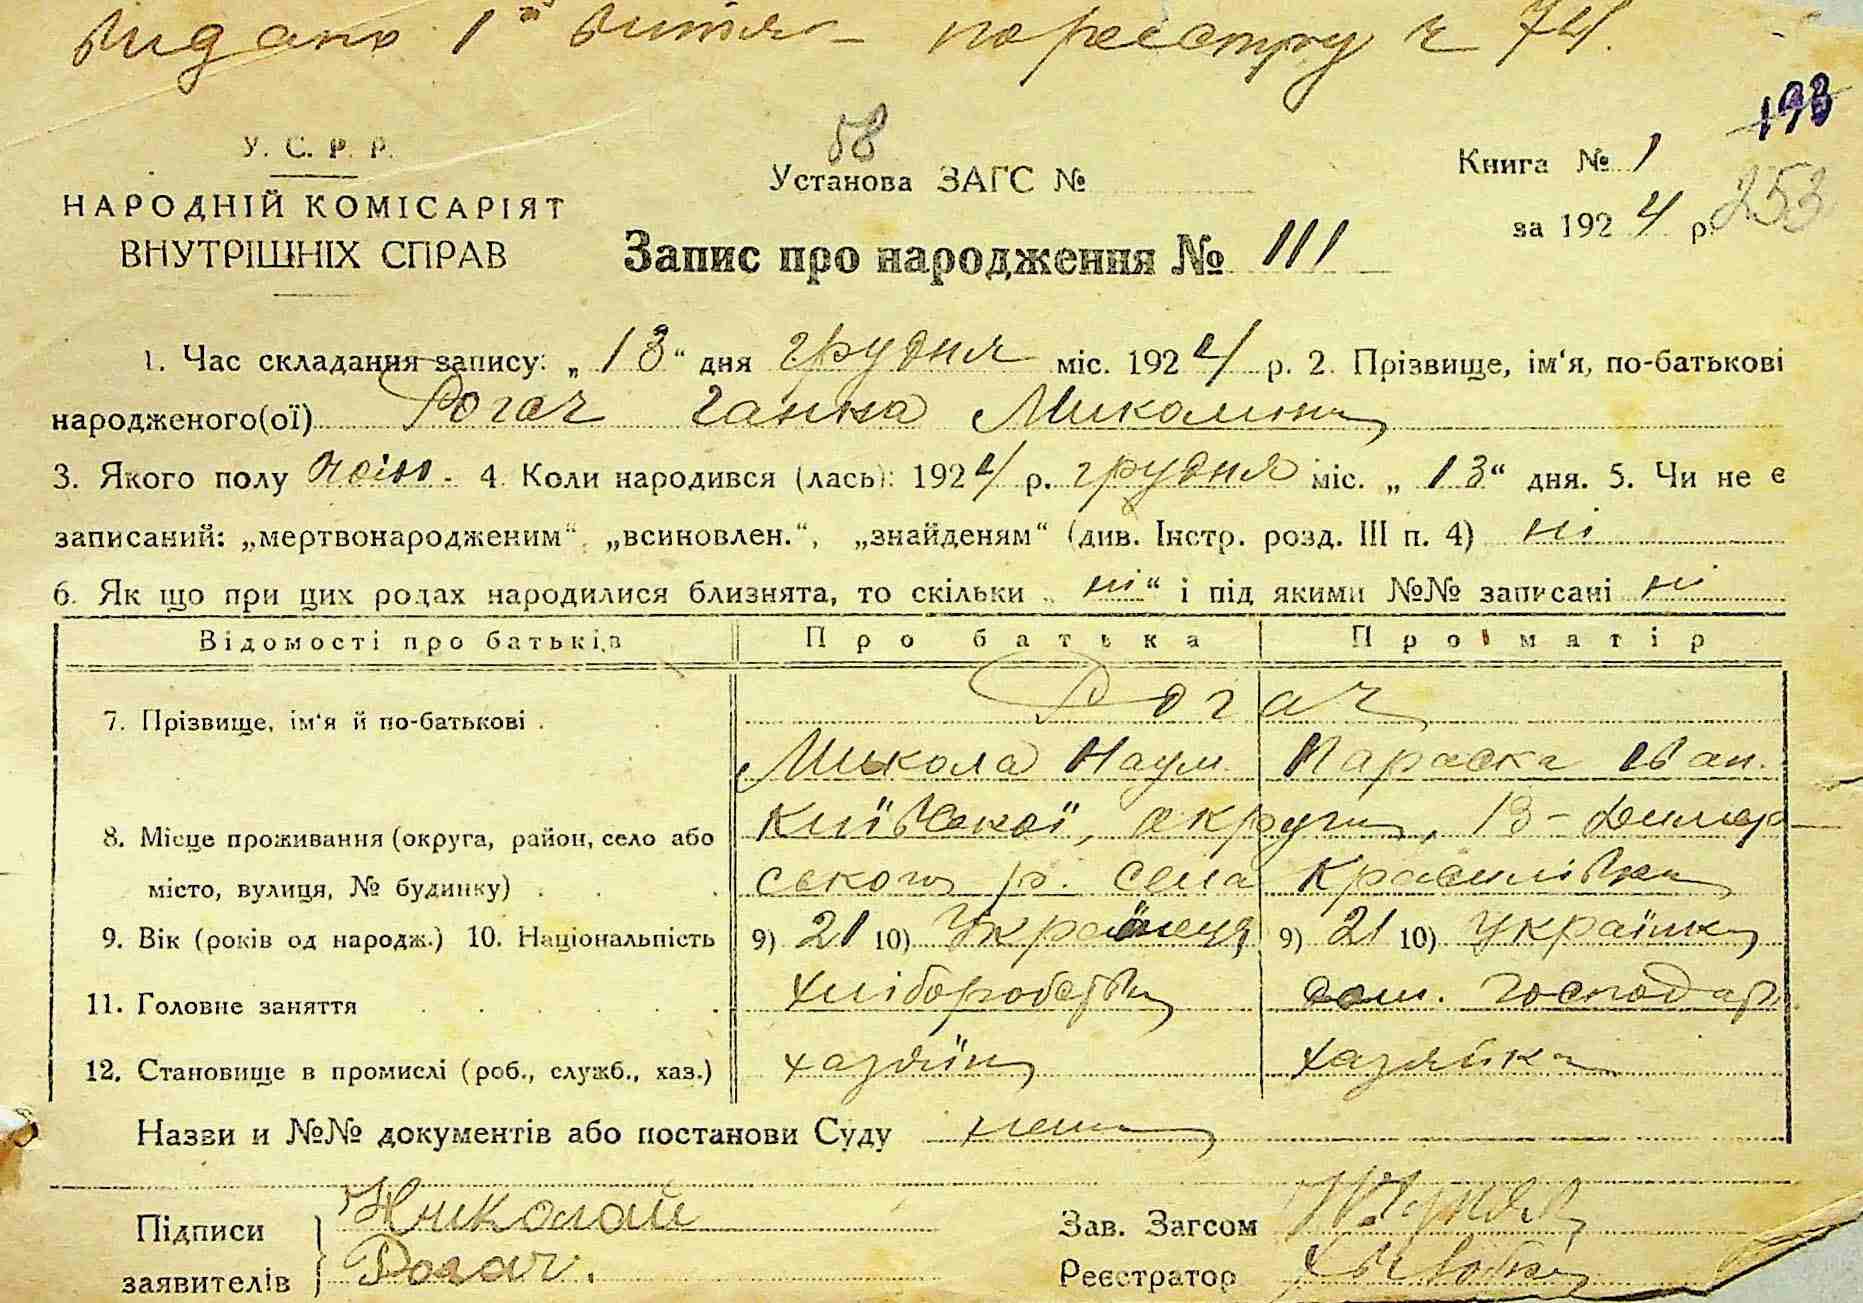 видано 1й витяг по реєстру № 741.
193
253
У. С. Р. Р.
НАРОДНІЙ КОМІСАРІЯТ
ВНУТРІШНІХ СПРАВ
58
Установа ЗАГС №
Запис про народження № 111
Книга № 1
за 1924 р.
1. Час складання запису: „ 13 “ дня грудня міс. 1924 р. 2. Прізвище, ім‘я, по-батькові
народженого(ої) Рогач Ганна Миколина
3. Якого полу жіно. 4. Коли народився (лась): 1924 р. грудня міс. „ 13 “ дня. 5. Чи не є
записаний: „мертвонародженим“, „всиновлен.“, „знайденям“ (див. Інстр. розд. III п. 4) ні
6. Як що при цих родах народилися близнята, то скільки „ ні “ і під якими №№ записані ні
Відомості про батьків Про батька Про матір
7. Прізвище, ім‘я й по-батькові . Рогач
Микола Наум Параска Іван.
8. Місце проживання (округа, район, село або Київської, округи, В-Димер-
місто, вулиця, № будинку) . . ського р. села Красилівки
9. Вік (років од народж.) 10. Національність 9) 21 10) Українець 9) 21 10) Українка
11. Головне заняття хліборобство дом. господар.
12. Становище в промислі (роб., служб., хаз.) хазяїн хазяйка
Назви и №№ документів або постанови Суду нема
Підписи Николай
заявителів Рогач.
Зав. Загсом
Реєстратор